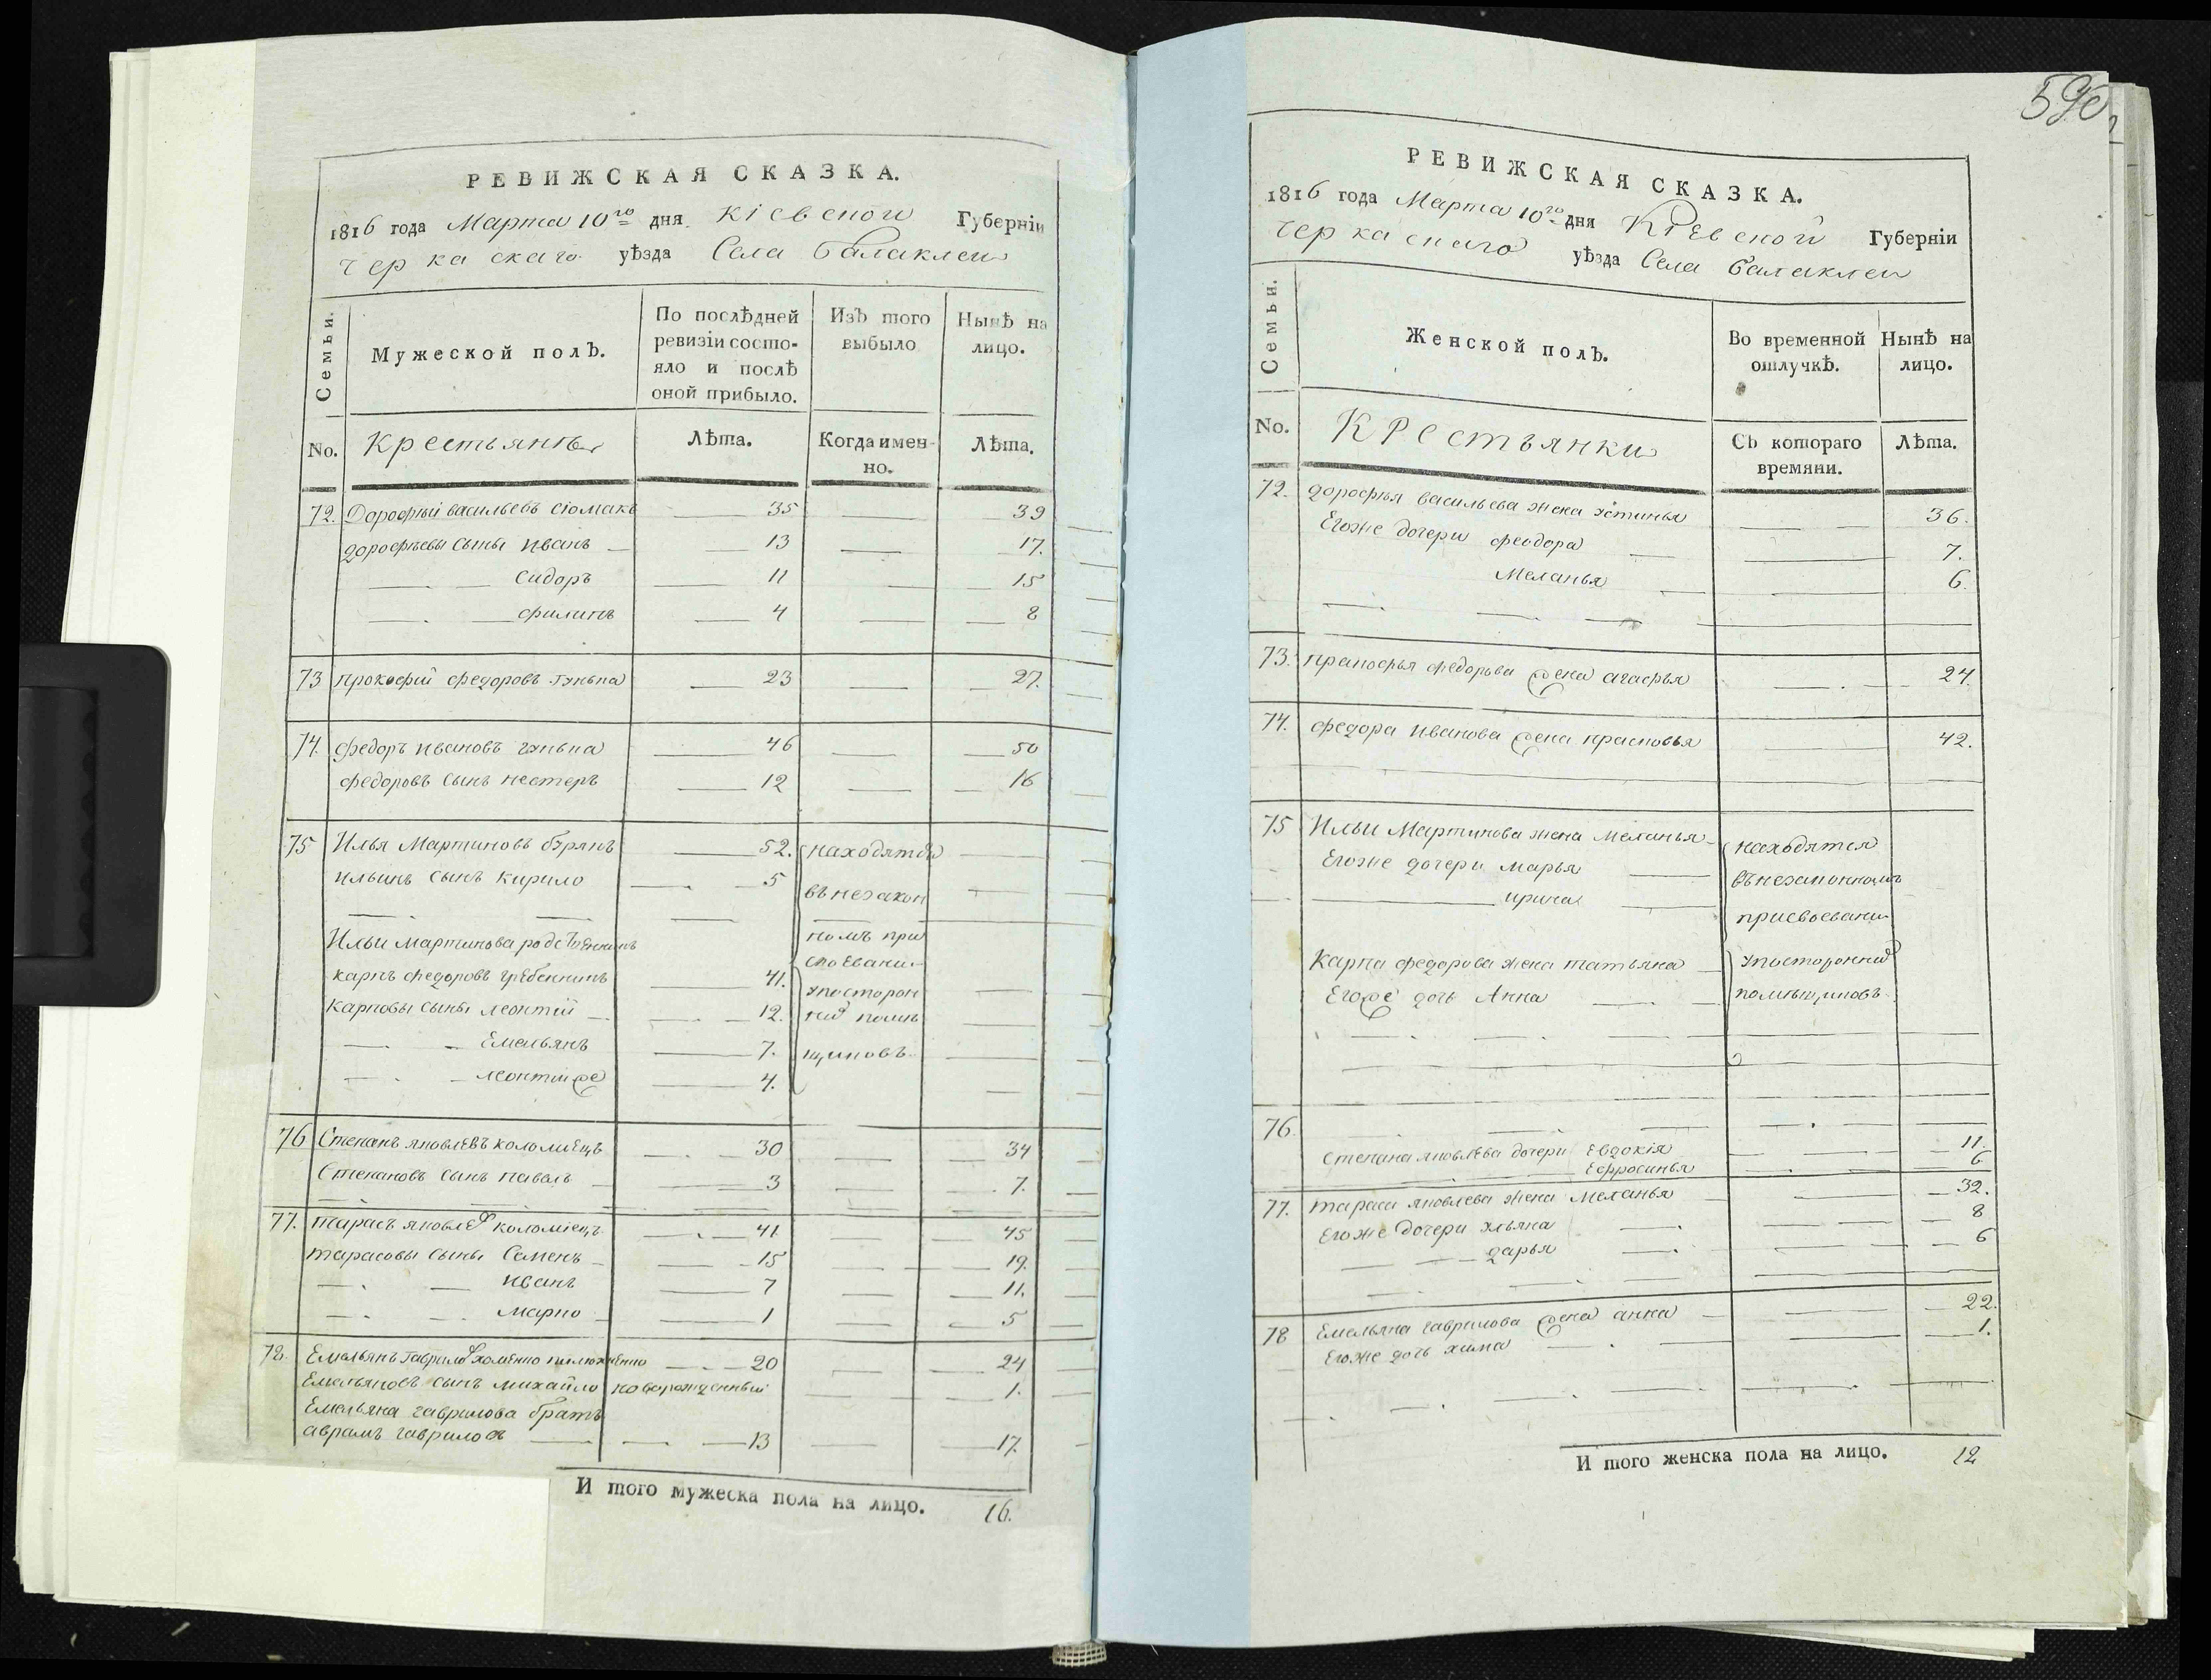 РЕВИЖСКАЯ СКАЗКА.
1816 года Марта 10го дня Кіевской Губерніи
Черкаскаго уѣзда Села Балаклеи
Семьи.
Мужеской полЪ.
По послѣдней ревизіи состо-
яло и послѣ
оной прибыло.
ИзЪ того
выбыло
НынѢ на
лицо.
No.
Крестьянѣ
Лѣта.
Когда имен-
но.
Лѣта.
72. Дорофѣй васильевъ сіомакъ 35 39
дорофѣевы сыны иванъ 13 17.
Сидоръ 11 15
филипъ 4 8
73 прокофій федоровъ 23 27.
74. федоръ ивановъ 46 50
федоровъ сынъ нестеръ 12 16
75 Илья Мартиновъ бурянъ 52. находятся
ильинъ сынъ кирило 5 въ незакон
Ильи мартинова родственникъ номъ при
своевани
карпъ федоровъ гребенникъ 41. упосторон
карповы сыны леонтій 12. помѣ
Емельянъ 7. щиковъ.
леонтій же 4.
76 Степанъ яковлевъ коломіецъ 30 34
Степановъ сынъ павелъ 3 7.
77. тарасъ яковлев коломіецъ 41 45
тарасовы сыны Семенъ 15 19.
иванъ 7 11.
марко 1 5
78. Емельянъ гаврилов хоменко 20 24
Емельяновъ сынъ михайло новорожденный 1.
Емельяна гаврилова братъ
аврамъ гавриловъ 13 17.
И того мужеска пола на лицо. 16.
590
РЕВИЖСКАЯ СКАЗКА.
1816 года Марта 10го дня Кіевской Губерніи
черкаскаго уѣзда Села балаклеи
Семьи.
Женской полЪ.
Во временной
отлучкѢ.
НынѢ на
лицо.
No.
Крестьянки
СЪ котораго
времяни.
Лѣта.
72. дорофѣя васильева жена устинья 36.
Егоже дочери феодора 7.
Меланья 6.
73. прокофья федорова жена агафья 24.
74. федора иванова жена 42.
75 Ильи Мартинова жена меланья находятся
Егоже дочери марья въ незаконномъ
ирина присвоевани
Карпа федорова жена татьяна упосторонних
Егоже дочь Анна помѣщиковъ
76.
степана яковлева дочери Евдокія 11.
Ефросинья 6
77. тараса яковлева жена меланья 32.
Егоже дочери ульяна 8
дарья 6
78 Емельяна гаврилова жена анна 22.
Егоже дочь хима 1.
И того женска пола на лицо. 12